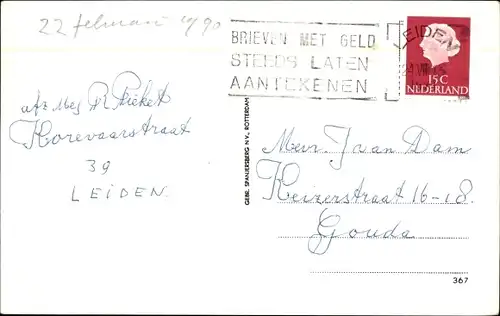 22 februari 1990
BRIEVEN MET GELD
STEEDS LATEN
AANTEKENEN
LEIDEN
15C
NEDERLAND
afz Mej R Picket
Korevaarstraat
39
LEIDEN
GEBR. SPANJERSBERG N.V., ROTTERDAM
Mevr. J van Dam
Keizerstraat 16-18
Gouda
367